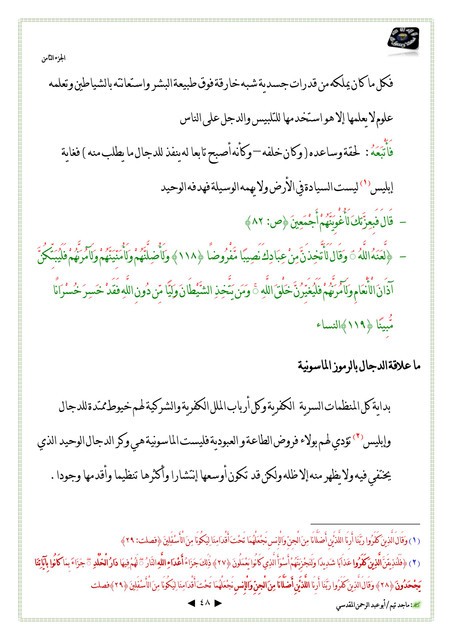 الجزء الثامن
فكل ما كان يملكه من قدرات جسدية شبه خارقة فوق طبيعة البشر واستعانته بالشياطين وتعلمه
علوم لا يعلمها إلا هو استخدمها للتلبيس والدجل على الناس
فَأَتْبَعَهُ : لحقة وساعده ( وكان خلفه – وكأنه أصبح تابعا له ينفذ للدجال ما يطلب منه ) فغاية
إبليس (١) ليست السيادة في الأرض ولا يهمه الوسيلة فهدفه الوحيد
– قَالَ فَبِعِزَّتِكَ لَأُغْوِيَنَّهُمْ أَجْمَعِينَ ﴿ص: ٨٢﴾
– ﴿لَّعَنَهُ اللَّهُ ۘ وَقَالَ لَأَتَّخِذَنَّ مِنْ عِبَادِكَ نَصِيبًا مَّفْرُوضًا ﴿١١٨﴾ وَلَأُضِلَّنَّهُمْ وَلَأُمَنِّيَنَّهُمْ وَلَآمُرَنَّهُمْ فَلَيُبَتِّكُنَّ
آذَانَ الْأَنْعَامِ وَلَآمُرَنَّهُمْ فَلَيُغَيِّرُنَّ خَلْقَ اللَّهِ ۚ وَمَن يَتَّخِذِ الشَّيْطَانَ وَلِيًّا مِّن دُونِ اللَّهِ فَقَدْ خَسِرَ خُسْرَانًا
مُّبِينًا ﴿١١٩﴾ النساء
ما علاقة الدجال بالرموز الماسونية
بداية كل المنظمات السرية الكفرية وكل أرباب الملل الكفرية والشركية لهم خيوط ممتدة للدجال
وإبليس (٢) تؤدي لهم بولاء فروض الطاعة و العبودية فليست الماسونية هي وكر الدجال الوحيد الذي
يختفي فيه ولا يظهر منه إلا ظله ولكن قد تكون أوسعها إنتشارا وأكثرها تنظيما وأقدمها وجودا .
(١) وَقَالَ الَّذِينَ كَفَرُوا رَبَّنَا أَرِنَا اللَّذَيْنِ أَضَلَّانَا مِنَ الْجِنِّ وَالْإِنسِ نَجْعَلْهُمَا تَحْتَ أَقْدَامِنَا لِيَكُونَا مِنَ الْأَسْفَلِينَ ﴿فصلت: ٢٩﴾
(٢) ﴿فَلَنُذِيقَنَّ الَّذِينَ كَفَرُوا عَذَابًا شَدِيدًا وَلَنَجْزِيَنَّهُمْ أَسْوَأَ الَّذِي كَانُوا يَعْمَلُونَ ﴿٢٧﴾ ذَٰلِكَ جَزَاءُ أَعْدَاءِ اللَّهِ النَّارُ ۖ لَهُمْ فِيهَا دَارُ الْخُلْدِ ۖ جَزَاءً بِمَا كَانُوا بِآيَاتِنَا
يَجْحَدُونَ ﴿٢٨﴾ وَقَالَ الَّذِينَ كَفَرُوا رَبَّنَا أَرِنَا اللَّذَيْنِ أَضَلَّانَا مِنَ الْجِنِّ وَالْإِنسِ نَجْعَلْهُمَا تَحْتَ أَقْدَامِنَا لِيَكُونَا مِنَ الْأَسْفَلِينَ ﴿٢٩﴾ فصلت
ماجد تيم / أبو عبد الرحمن المقدسي
٤٨